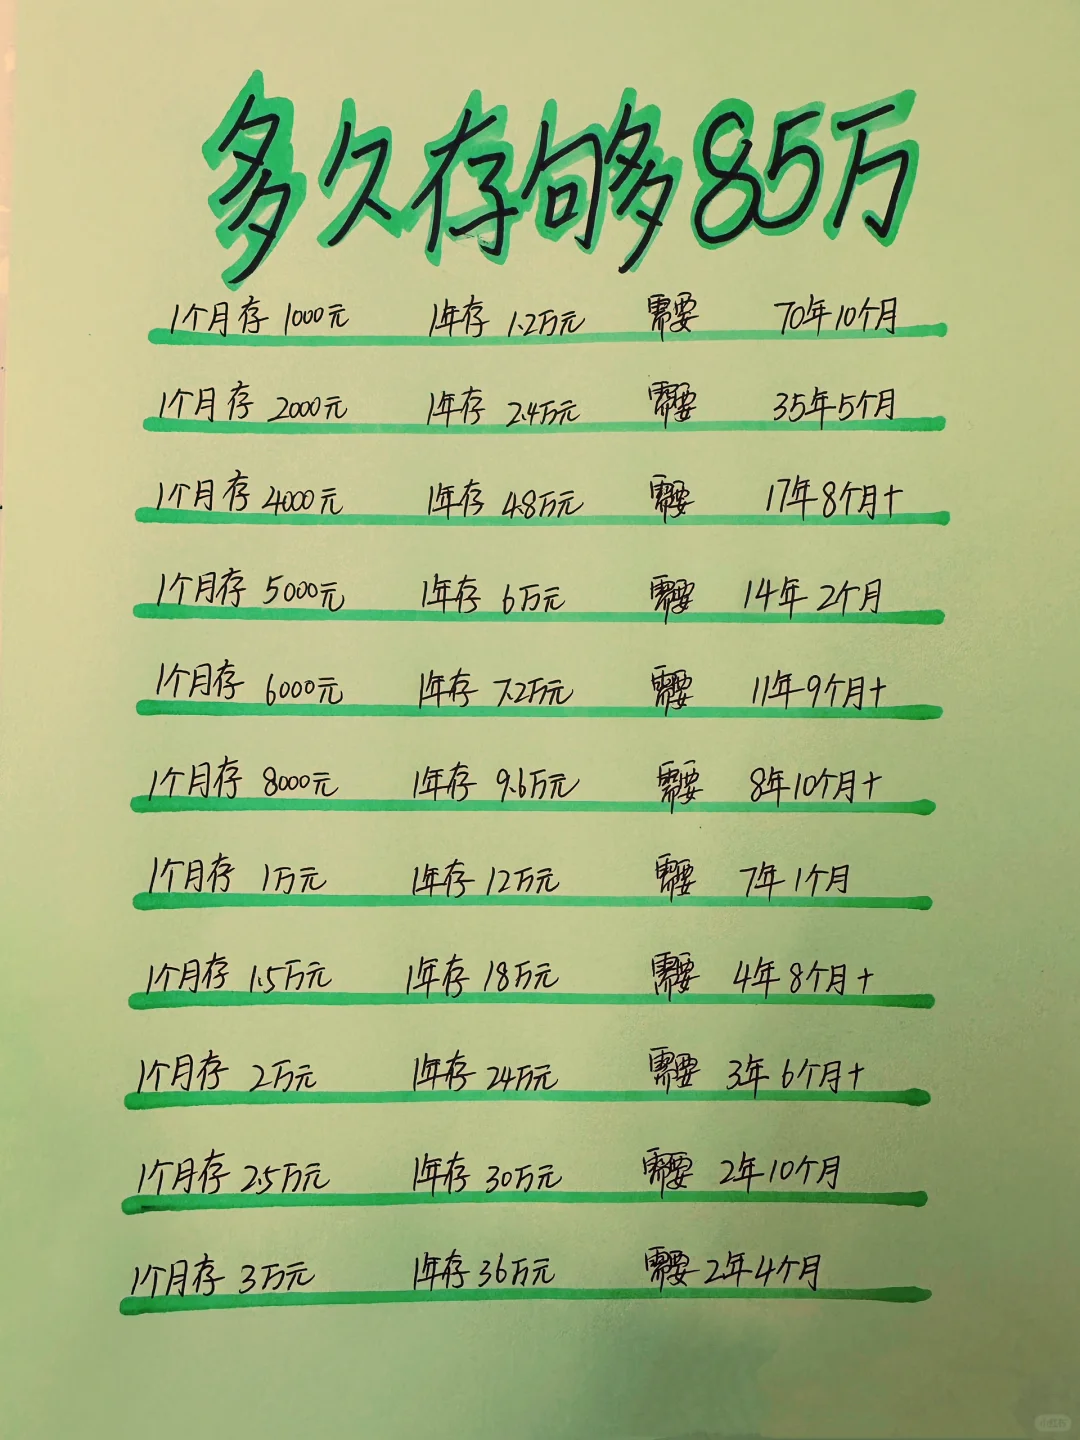 多久存够85万
1个月存 1000元 1年存 1.2万元 需要 70年10个月
1个月存 2000元 1年存 2.4万元 需要 35年5个月
1个月存 4000元 1年存 4.8万元 需要 17年8个月+
1个月存 5000元 1年存 6万元 需要 14年2个月
1个月存 6000元 1年存 7.2万元 需要 11年9个月+
1个月存 8000元 1年存 9.6万元 需要 8年10个月+
1个月存 1万元 1年存 12万元 需要 7年1个月
1个月存 1.5万元 1年存 18万元 需要 4年8个月+
1个月存 2万元 1年存 24万元 需要 3年6个月+
1个月存 2.5万元 1年存 30万元 需要 2年10个月
1个月存 3万元 1年存 36万元 需要 2年4个月
小红书